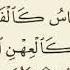 اسُ كَالْفَ
كَالْعِهْنِ ا